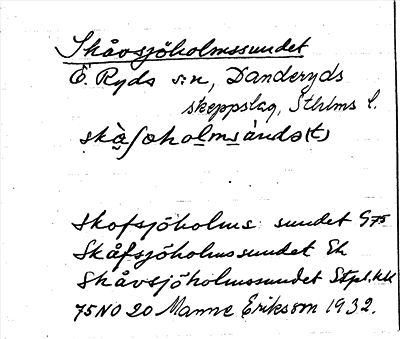 Skåvsjöholmssundet
Ö Ryds sn, Danderyds
skeppslag, Sthlms l.
skà̱ʃøhoḻms̱ándə(t)
Skofsjöholms sundet G75
Skåfsjöholmssundet Ek
Skåvsjöholmssundet Stpl.kbl
75NO 20 Manne Eriksson 1932.